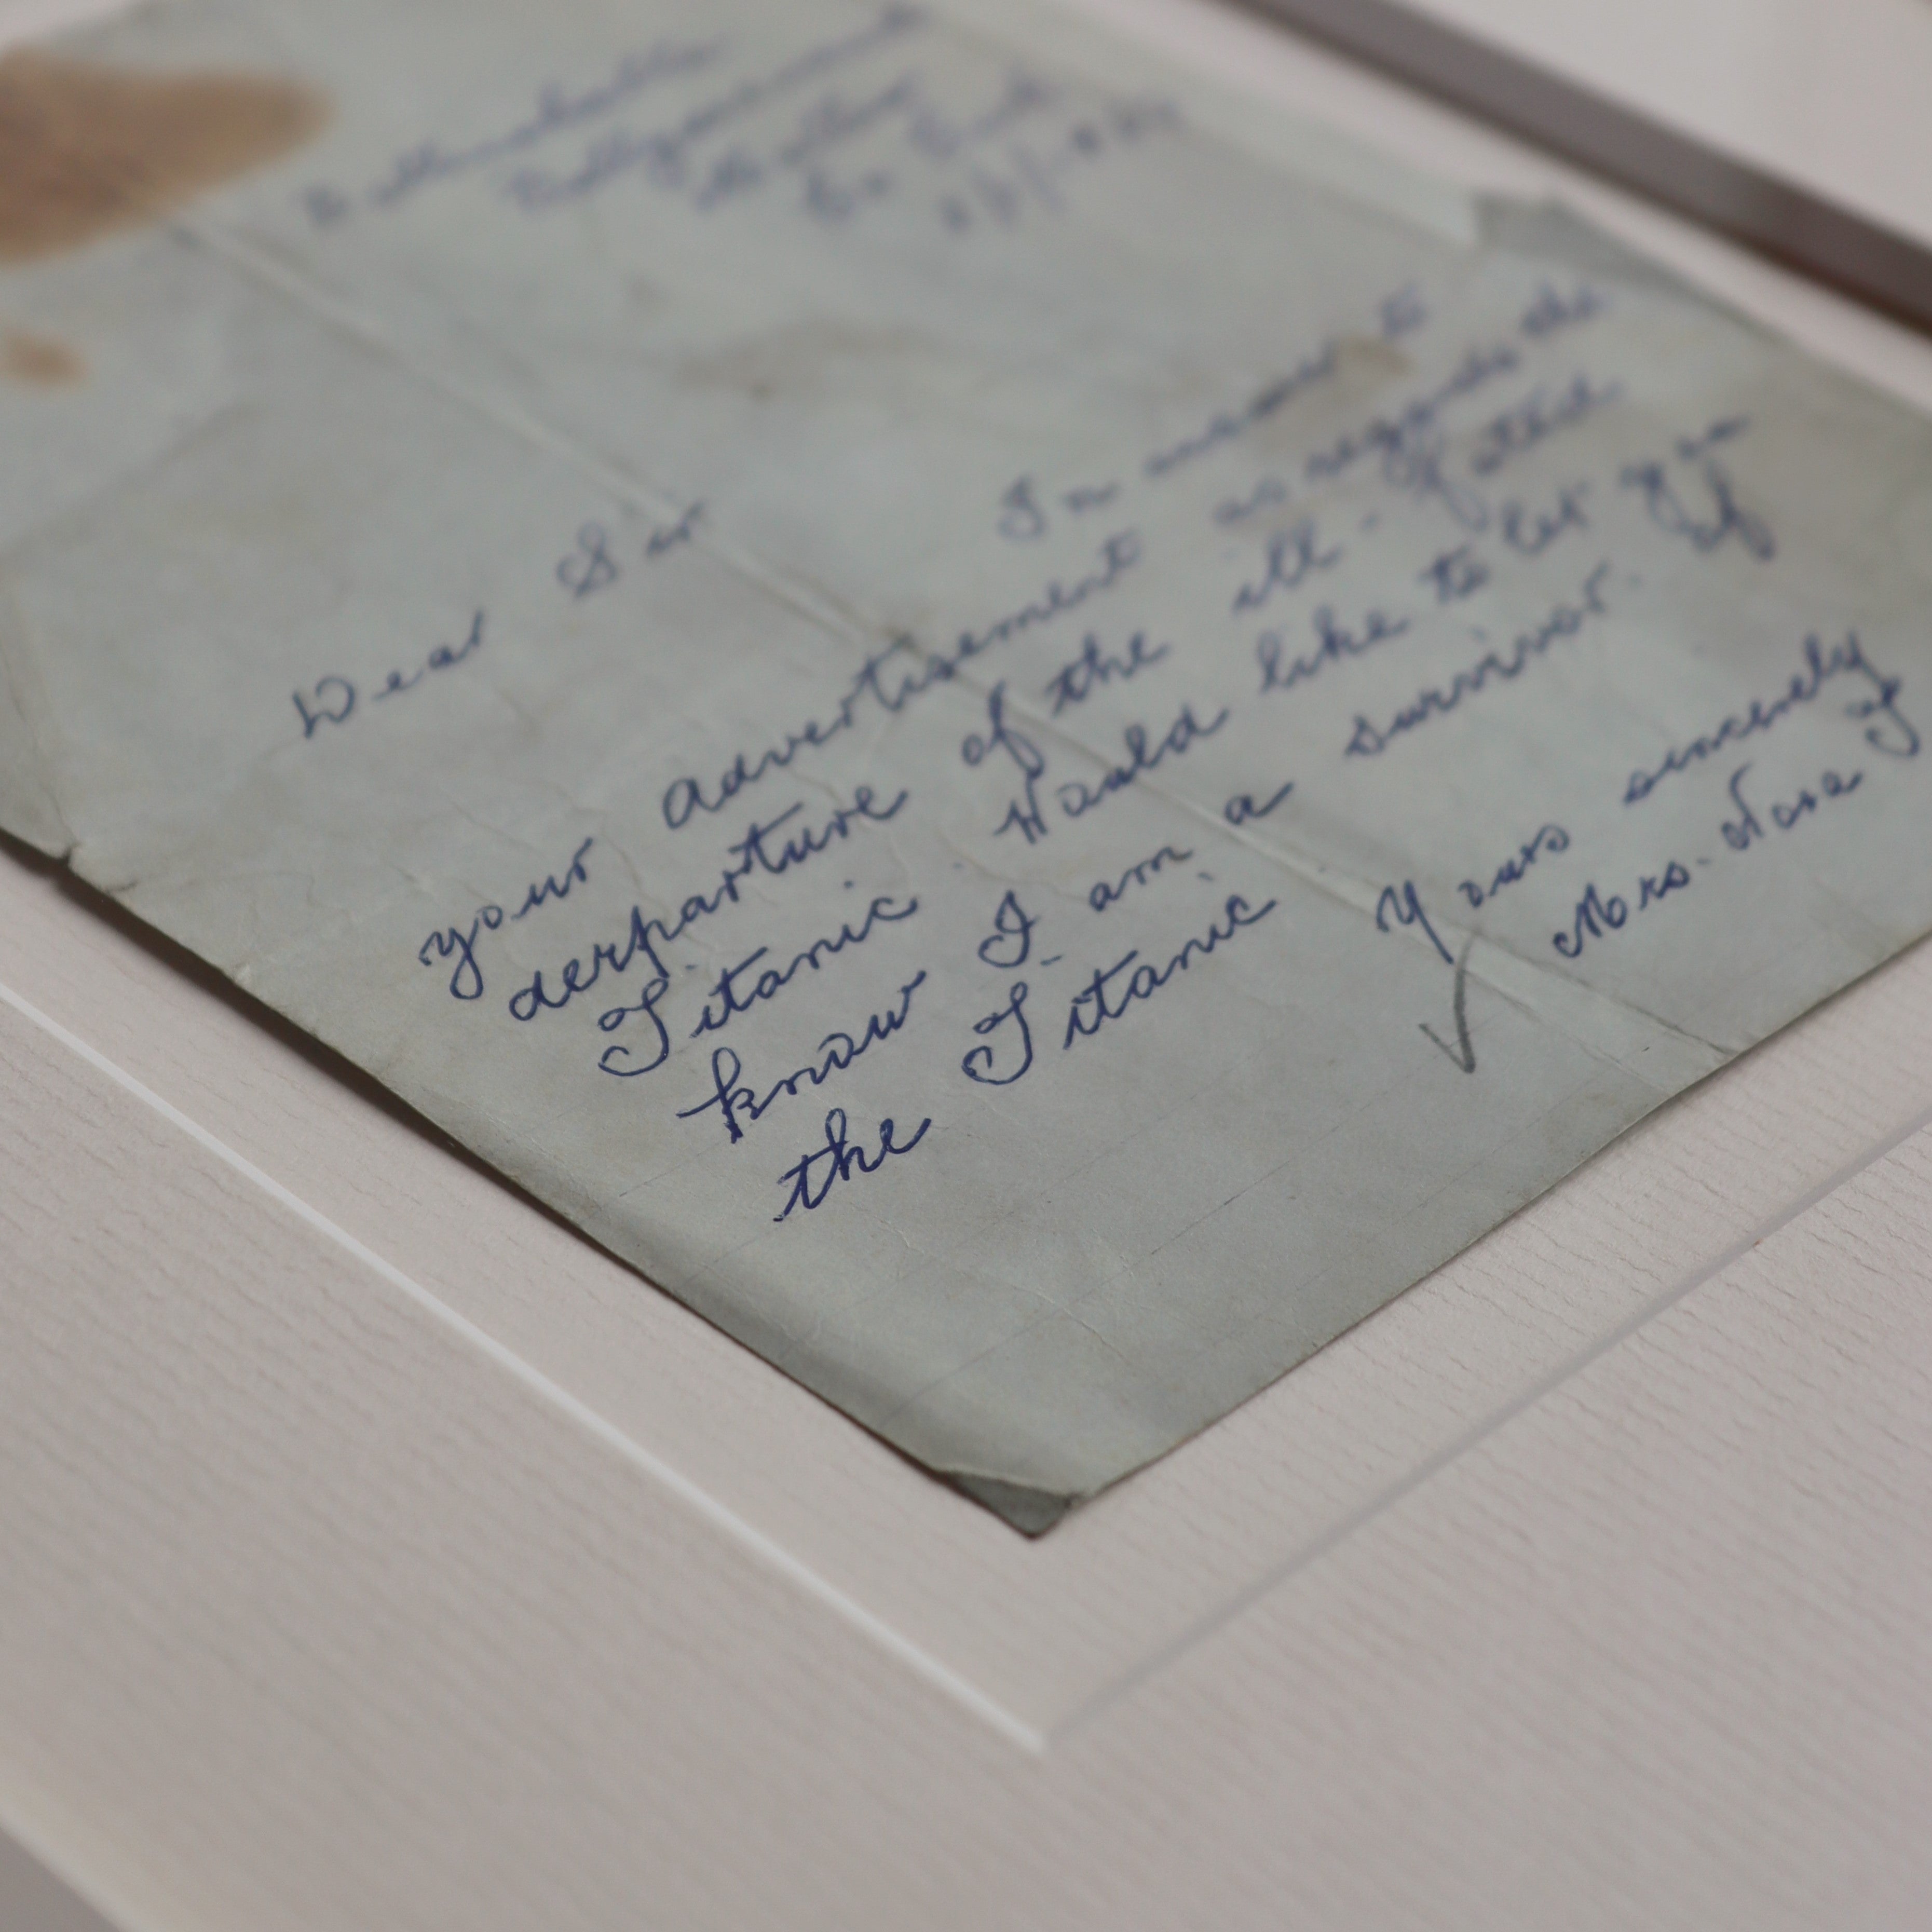 Dear Sir
In answer to
your advertisement as regards the
derparture of the ill-fated
Titanic. Would like to let you
know I am a survivor. of
the Titanic
Yours sincerely
Mrs. Nora